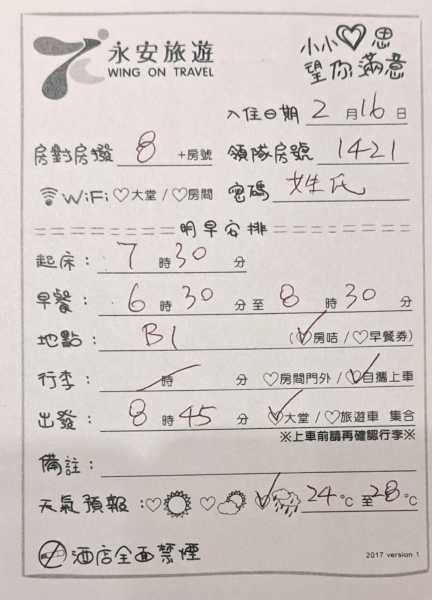 永安旅遊
WING ON TRAVEL
小小♡思
望你滿意
入住日期 2 月 16 日
房對房撥 8 +房號 領隊房號 1421
WiFi ♡大堂 / ♡房間 密碼 姓氏
明早安排
起床: 7 時 30 分
早餐: 6 時 30 分 至 8 時 30 分
地點: B1 (♡房咭 / ♡早餐券)
行李: 時 分 ♡房間門外 / ♡自攜上車
出發: 8 時 45 分 ♡大堂 / ♡旅遊車 集合
※上車前請再確認行李※
備註:
天氣預報: ♡ ♡ ♡ 24 °C 至 28 °C
酒店全面禁煙
2017 version 1